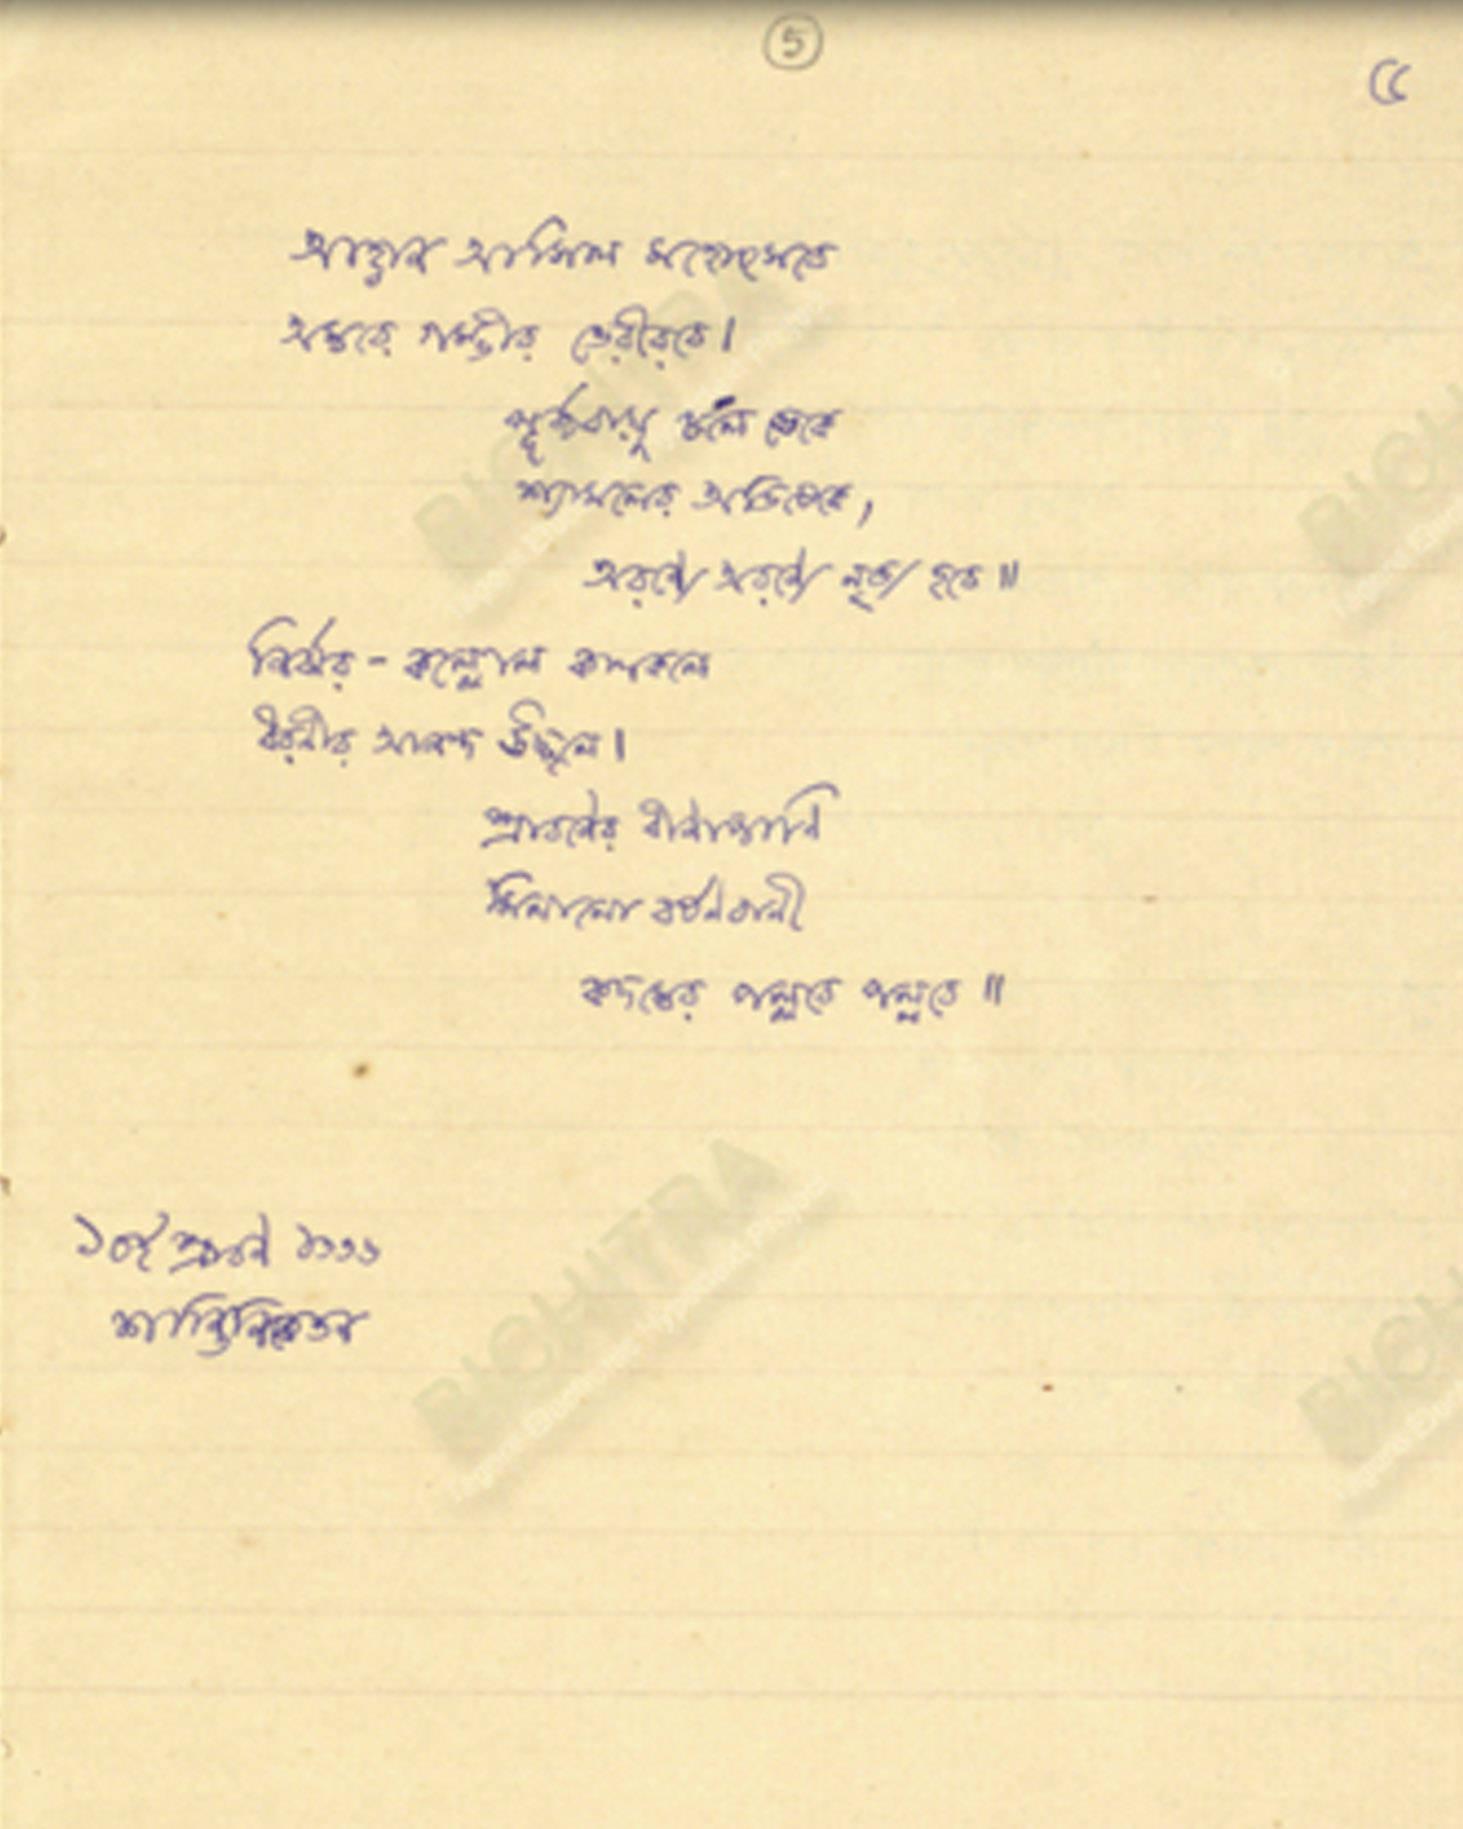 5
৫
আহ্বান আসিল মহোৎসবে
অম্বরে গম্ভীর ভেরীরবে।
পূর্ব্ববায়ু চলে ডেকে
শ্যামলের অভিষেকে,
অরণ্যে অরণ্যে নৃত্য হবে॥
নির্ঝর - কল্লোল কলকলে
ধরণীর আনন্দ উচ্ছলে।
শ্রাবণের বীণাপাণি
মিলালো বর্ষণবাণী
কদম্বের পল্লবে পল্লবে॥
১০ই শ্রাবণ ১৩৩৬
শান্তিনিকেতন